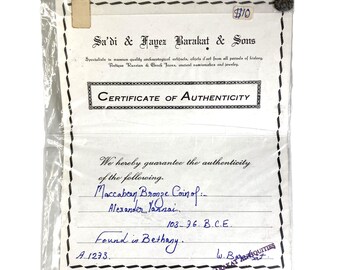 $10
Sa'di & Fayez Barakat & Sons
Specialists in museum quality archaeological artifacts, objects d'art from all periods of history
Antique Russian & Greek Icons, unusual numismatics and jewelry.
CERTIFICATE OF AUTHENTICITY
We hereby guarantee the authenticity
of the following.
Maccabean Bronze Coin of
Alexander Jannai
103-76 B.C.E.
Found in Bethany.
A.1273.